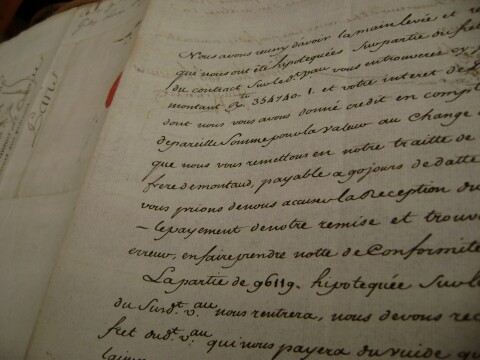 Paris
Nous avons reçu d'avoir la main levée et r
qui nous ont été hipotequées Sur partie du fret
du contract Sur led. vau vous en trouverez cy
montant £ 35474.10. 1. et votre interet de
dont nous vous avons donné credit en compt
de pareille Somme pour la valeur au change d
que nous vous remettons en notre traitte de
frere demontaud, payable a 90 jours de datte
vous prions de nous accuser la Reception du
le payement de notre remise et trouv
erreur, en faire prendre notte de Conformité
La partie de 96119. hipotequée Sur le
du Surdt. vau nous rentrera, nous devons rec
fret dudt. vau qui nous payera du vuide qu